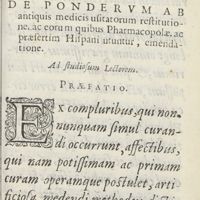 DE PONDERVM AB
antiquis medicis usitatorum restitutio-
ne. ac eorum quibus Pharmacopolæ, ac
præsertim Hispani utuntur, emenda-
tione.
Ad studiosum Lectorem.
PRÆFATIO.
Ex compluribus, qui non-
nunquam simul curan-
di occurrunt, affectibus,
qui nam potissimam ac primam
curam operamque postulet, arti
ficiosa medendi methodus